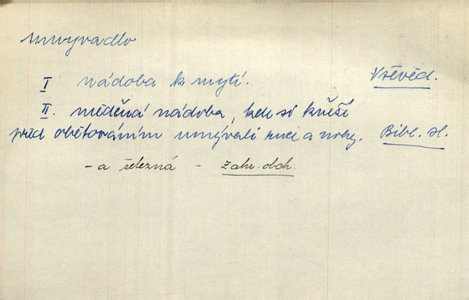 umyvadlo
I nádoba k mytí. Vševěd.
II. měděná nádoba, kde si kněží
před obětováním umývali ruce a nohy. Bibl. sl.
- a železná - Zahr. obch.